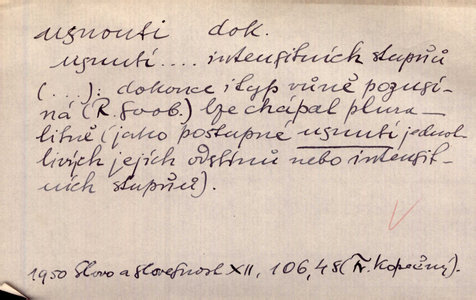 usnouti dok.
usnutí .... intensitních stupňů
(...): dokonce i typ vůně pozusí-
ná (R. Svob.) lze chápat plura-
litně (jako postupné usnutí jednot-
livých jejích odstínů nebo intensit-
ních stupňů).
1950 Slovo a slovesnost XII, 106, 48 (Fr. Kopečný).